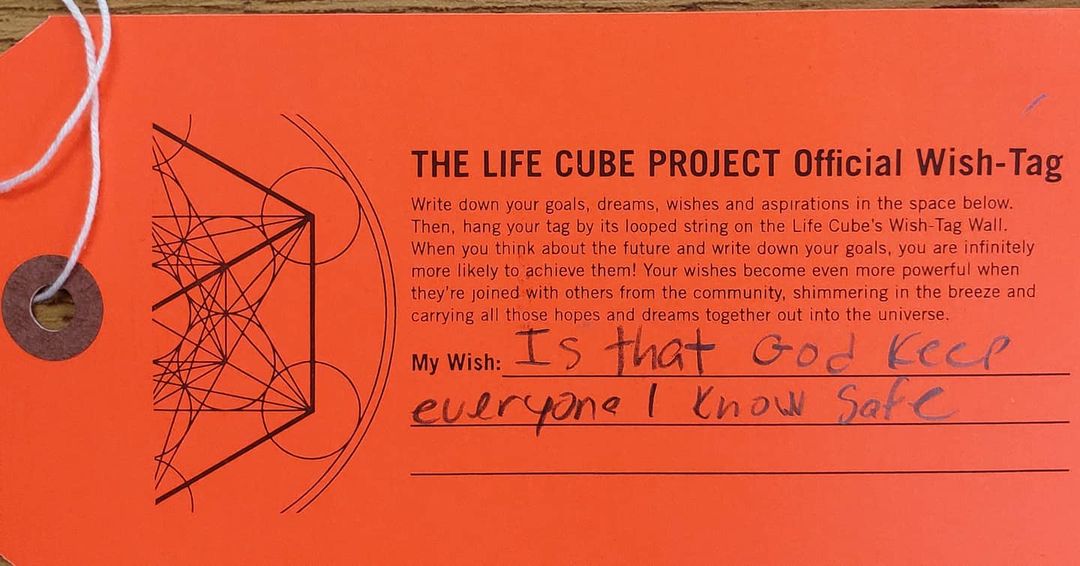 THE LIFE CUBE PROJECT Official Wish-Tag
Write down your goals, dreams, wishes and aspirations in the space below.
Then, hang your tag by its looped string on the Life Cube's Wish-Tag Wall.
When you think about the future and write down your goals, you are infinitely
more likely to achieve them! Your wishes become even more powerful when
they're joined with others from the community, shimmering in the breeze and
carrying all those hopes and dreams together out into the universe.
My Wish: Is that God Keep
everyone I know Safe